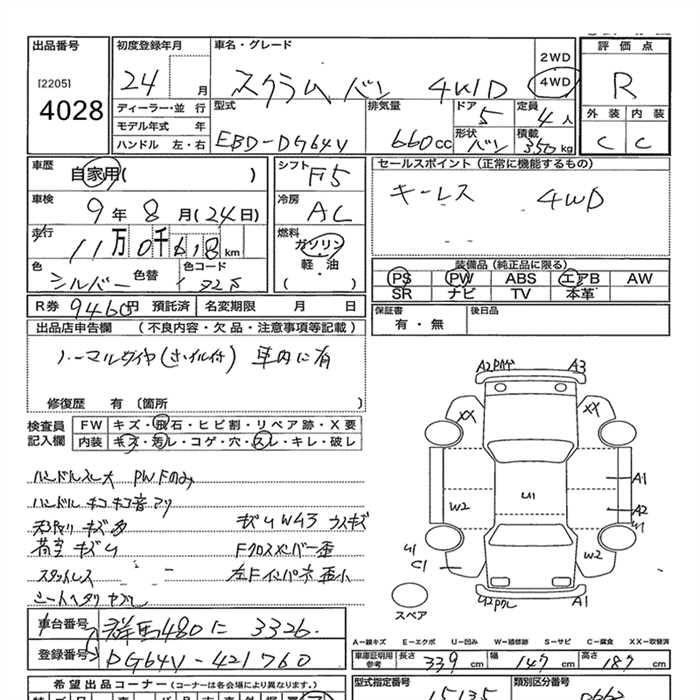 出品番号
[2205]
4028
初度登録年月
24 月
車名・グレード
スクラム バン 4WD
2WD
4WD
評価点
R
外装 内装
C C
ディーラー・並行
モデル年式 年
ハンドル 左・右
型式
EBD-DG64V
排気量
660cc
ドア
5
定員
4人
形状
バン
積載
350kg
車歴
自家用( )
車検
9年8月(24日)
走行
11万0千618km
色
シルバー
色替
色コード
シフト
F5
冷房
AC
燃料
ガソリン
軽・油
( )
セールスポイント(正常に機能するもの)
キーレス 4WD
装備品(純正品に限る)
PS PW ABS エアB AW
SR ナビ TV 本革
R券 9460円 預託済 名変期限 月 日
保証書
有・無
後日品
出品店申告欄 (不良内容・欠品・注意事項等記載)
ノーマルタイヤ(ホイル付) 車内に有
修復歴 有 〔箇所 〕
検査員
記入欄
FW キズ・飛石・ヒビ割・リペア跡・X要
内装 キズ・汚レ・コゲ・穴・スレ・キレ・破レ
ハンドルスレ大 PWFのみ
ハンドルキコキコ音アリ
天張リキズ多 キズU W43 ウスキズ
荷室キズU Fクロスメンバー歪
スタットレス 左Fインパネ歪小
シートヘタリ ヤブレ
A2 A3
XX XX
U1
A1
A2
W2
U1
C1
W2
A1
スペア
車台番号
群馬480に 3326
登録番号
DG64V-421760
A-線キズ E-エクボ U-凹み W-補修跡 S-サビ C-腐食 XX-取替済
車庫証明用
参考
長さ 339cm 幅 147cm 高さ 187cm
希望出品コーナー(コーナーは各会場により異なります。)
型式指定番号
15135
類別区分番号
0662